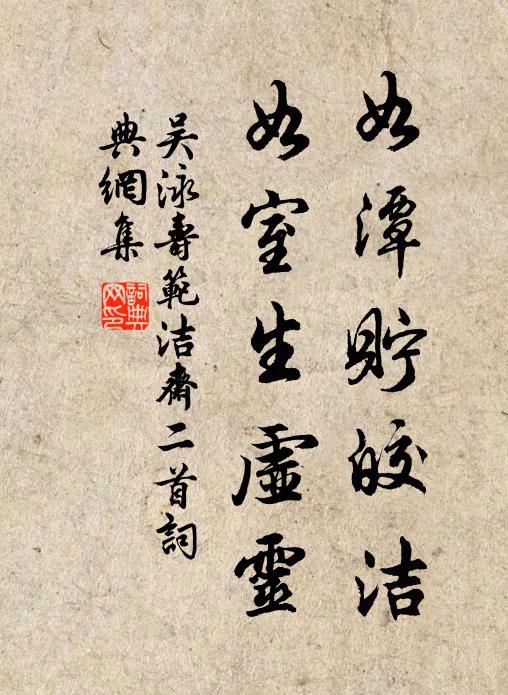 如潭貯皎洁
如室生虛靈
吳泳壽範洁齋二首詞
典網集
詞典
网印